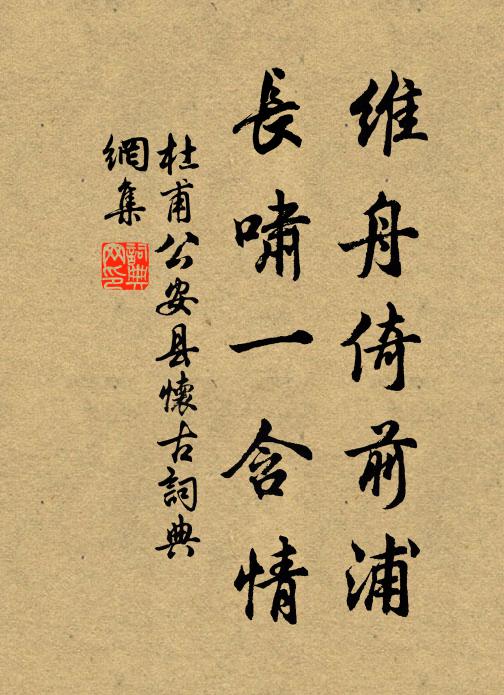 維舟倚前浦
長嘯一含情
杜甫公安县懷古詞典
網集
詞典
网印